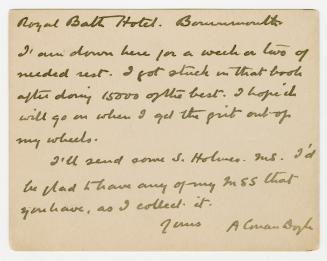 Royal Bath Hotel. Bournmouth
I'am down here for a week or two of
needed rest. I got stuck in that book
after doing 15000 of the best. I hope it
will go on when I get the grit out of
my wheels.
I'll send some S. Holmes. MS. I'd
be glad to have any of my MSS that
you have, as I collect it.
Yours A Conan Doyle